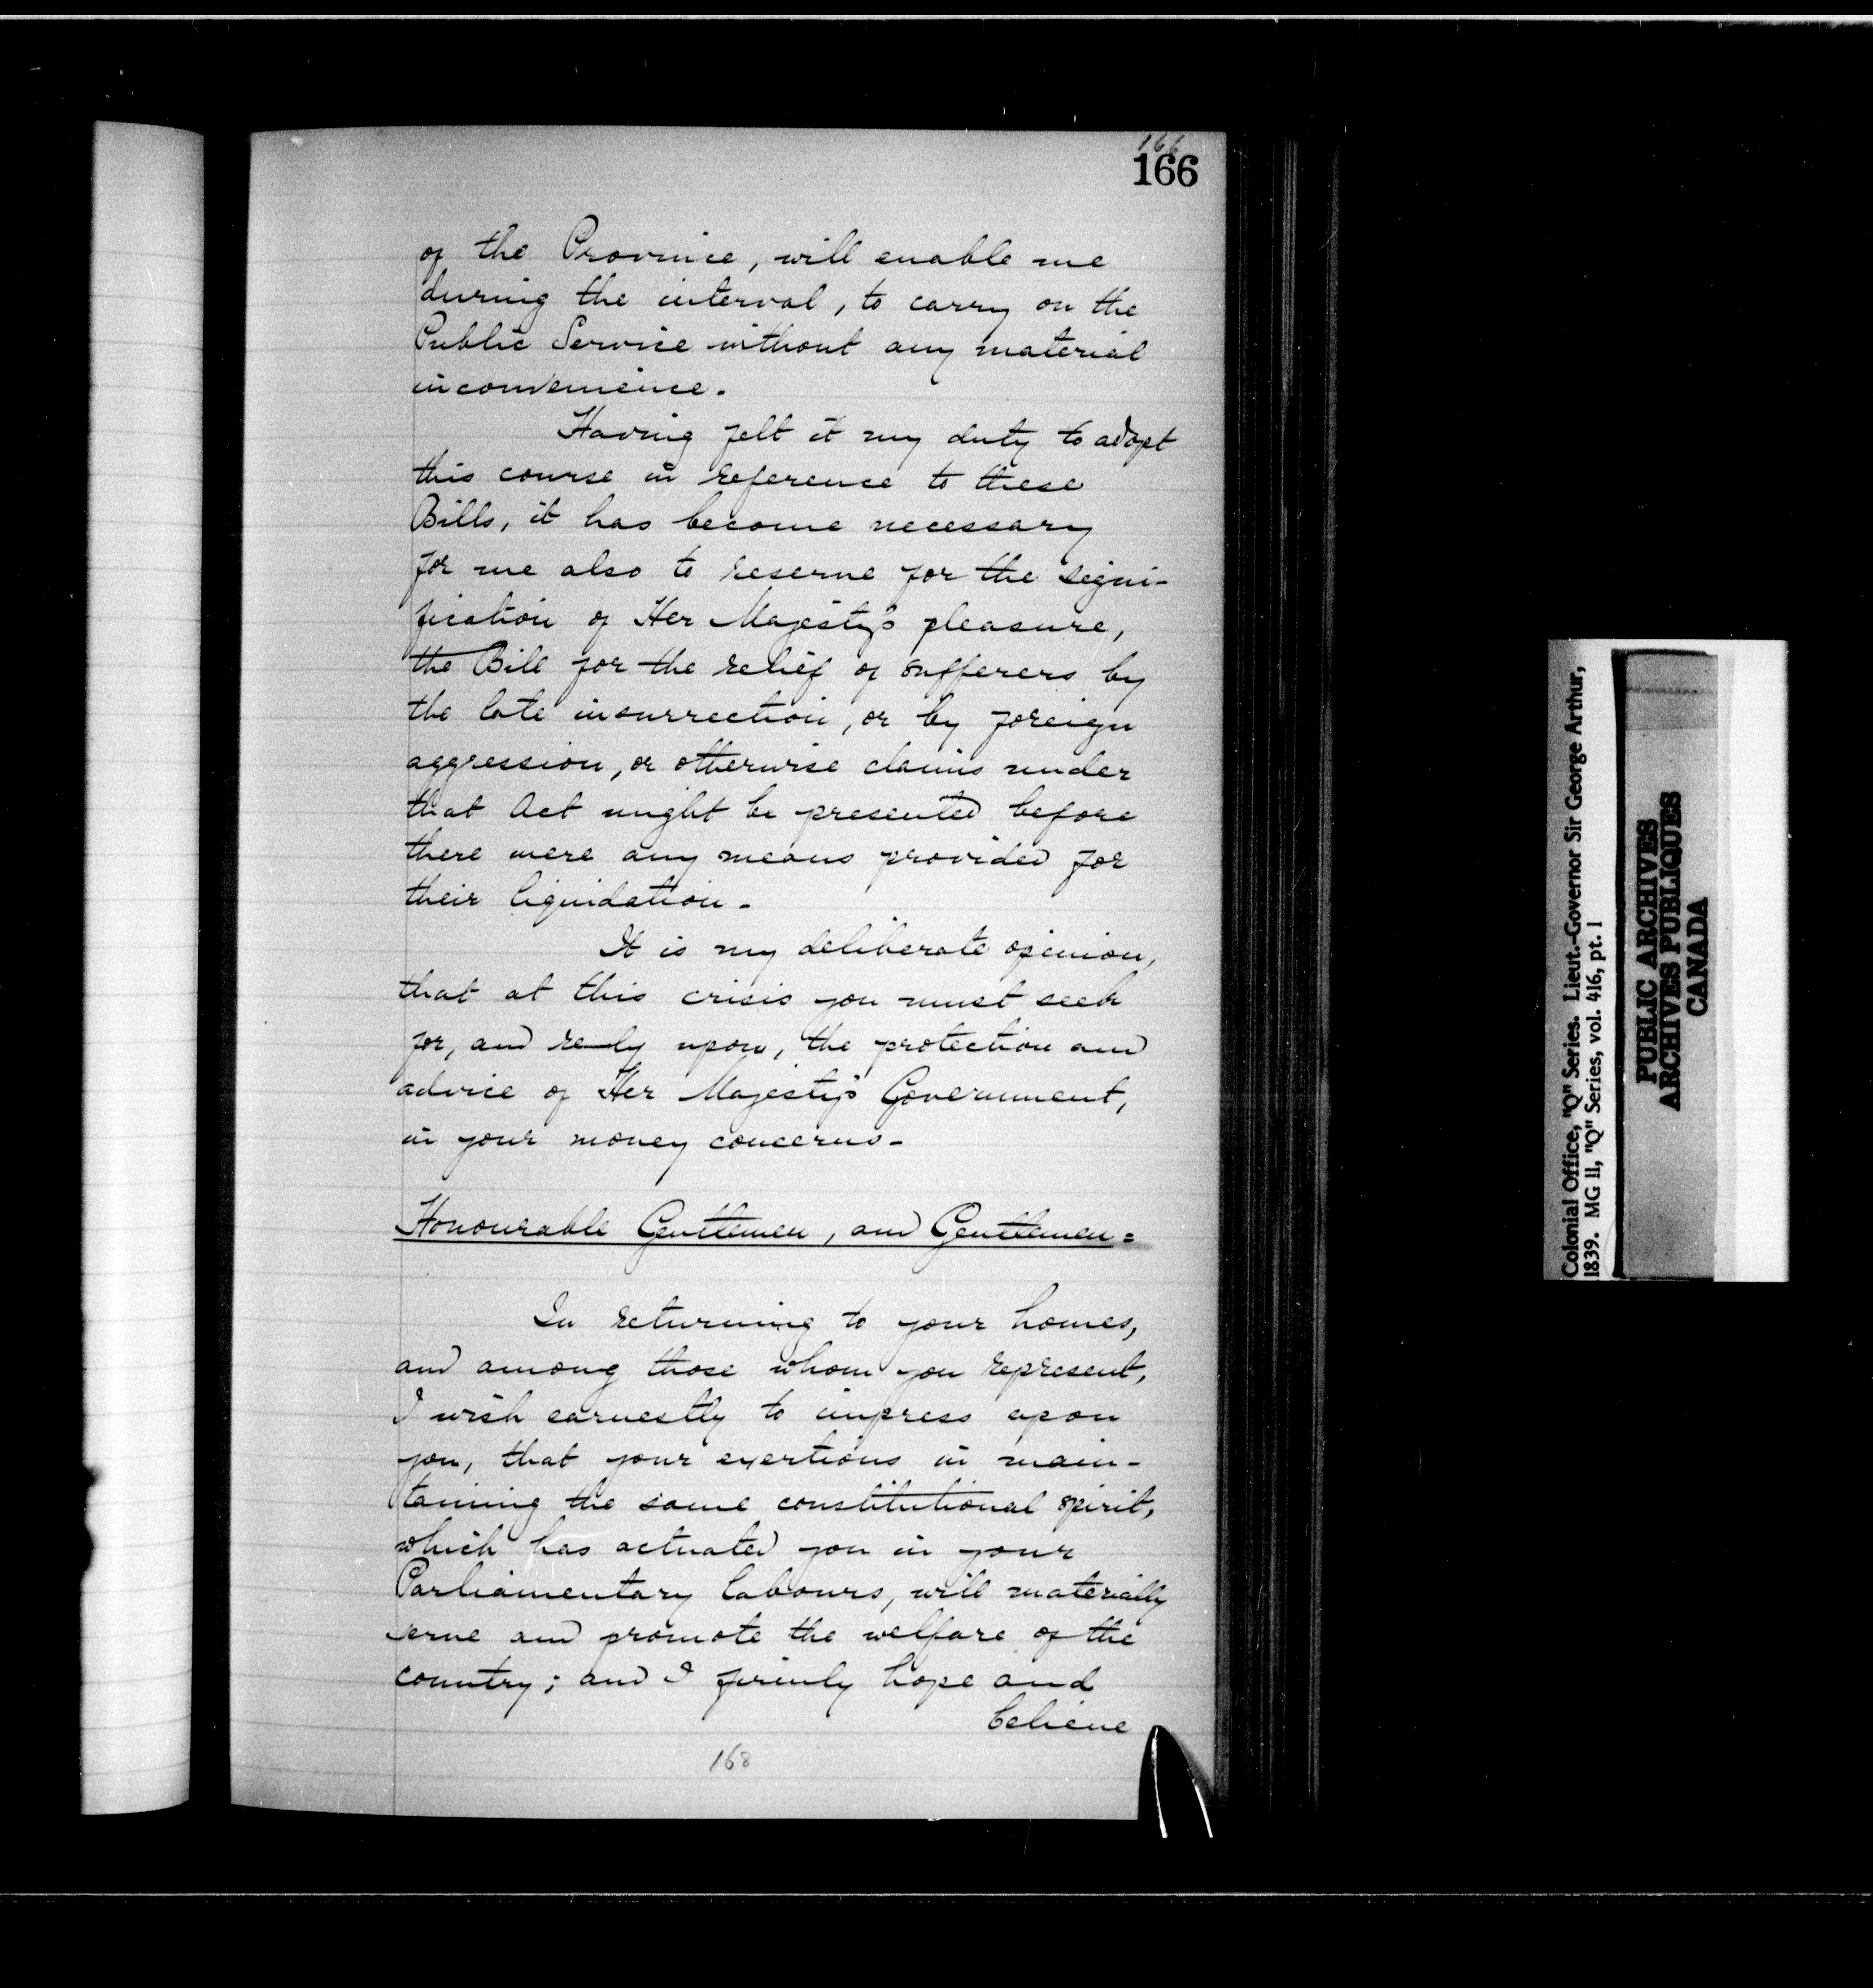 166
166
of the Province, will enable me
during the interval, to carry on the
Public Service without any material
inconvenience.
Having felt it my duty to adopt
this course in reference to these
Bills, it has become necessary
for me also to reserve for the signi-
fication of Her Majesty's pleasure,
the Bill for the relief of sufferers by
the late insurrection, or by foreign
aggression, or otherwise claims under
that Act might be presented before
there were any means provided for
their liquidation-
It is my deliberate opinion,
that at this crisis you must seek
for, and rely upon, the protection and
advice of Her Majesty's Government,
in your money concerns-
Honourable Gentlemen, and Gentlemen=
In returning to your homes,
and among those whom you represent,
I wish earnestly to impress upon
you, that your exertions in main-
taining the same constitutional spirit,
which has actuated you in your
Parliamentary labours, will materially
serve and promote the welfare of the
country; and I firmly hope and
believe
168
Colonial Office, "Q" Series. Lieut.-Governor Sir George Arthur,
1839. MG 11, "Q" Series, vol. 416, pt. 1
PUBLIC ARCHIVES
ARCHIVES PUBLIQUES
CANADA